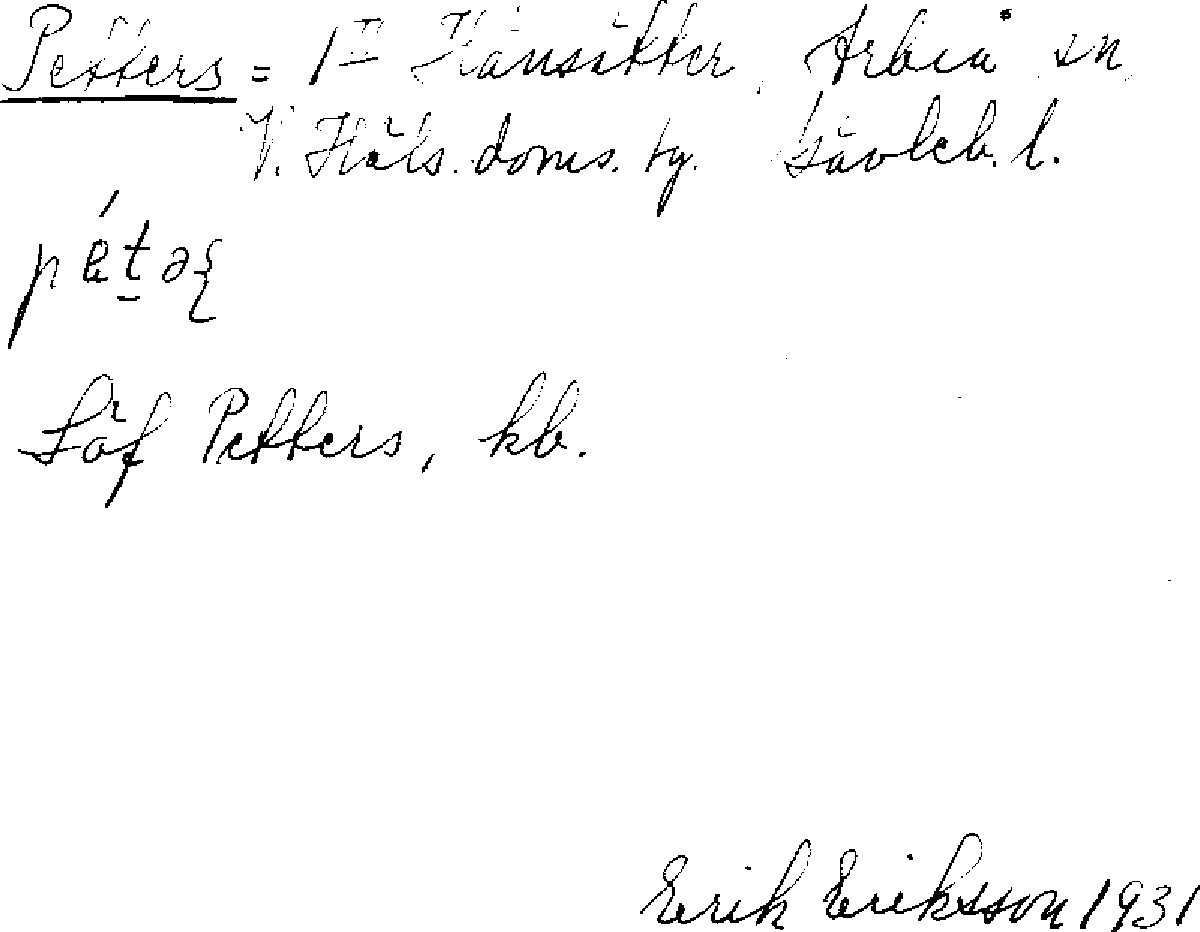 Petters = 1 II Hånsätter, Arbrå sn,
V. Häls. doms. hg. Gävleb. l.
Löf Petters, kb.
Erik Eriksson 1931